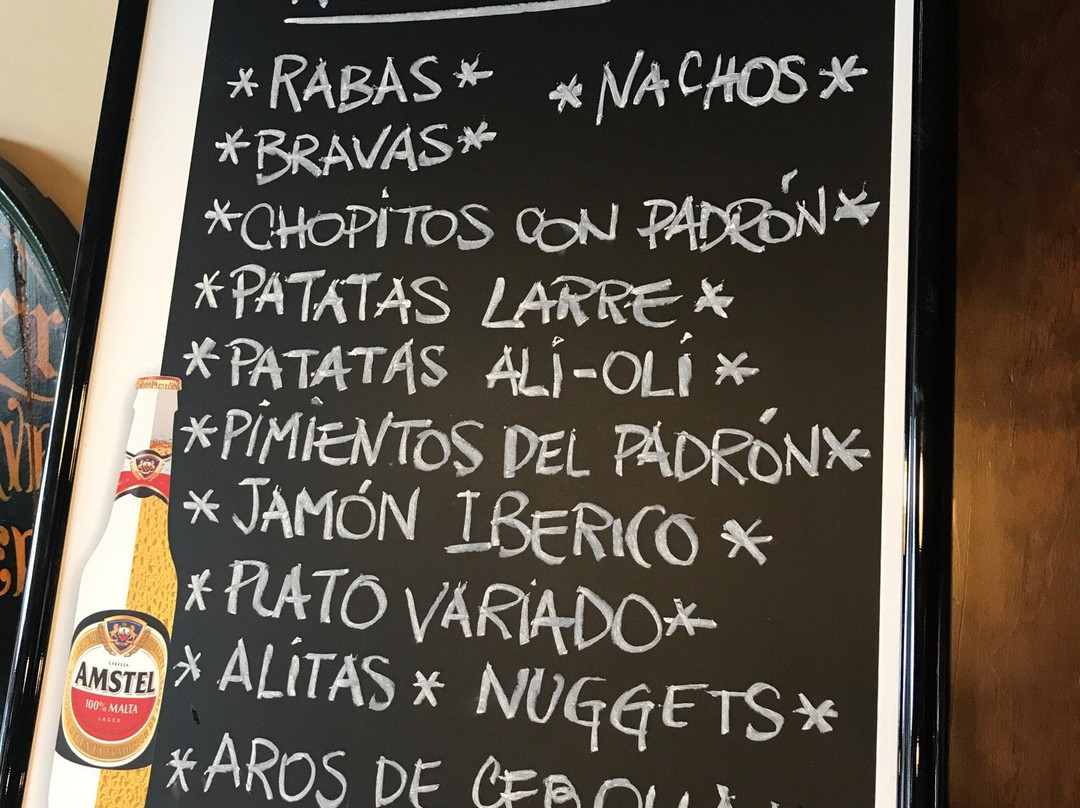 *RABAS* *NACHOS*
*BRAVAS*
*CHOPITOS CON PADRÓN*
*PATATAS LARRE*
*PATATAS ALI-OLI*
*PIMIENTOS DEL PADRÓN*
*JAMÓN IBERICO*
*PLATO VARIADO*
*ALITAS* NUGGETS*
*AROS DE CEBOLLA
CERVEZA
AMSTEL
100% MALTA
LAGER